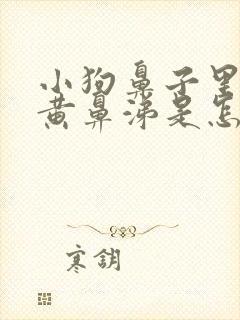 小狗鼻子里
黄鼻涕是怎
寒钥